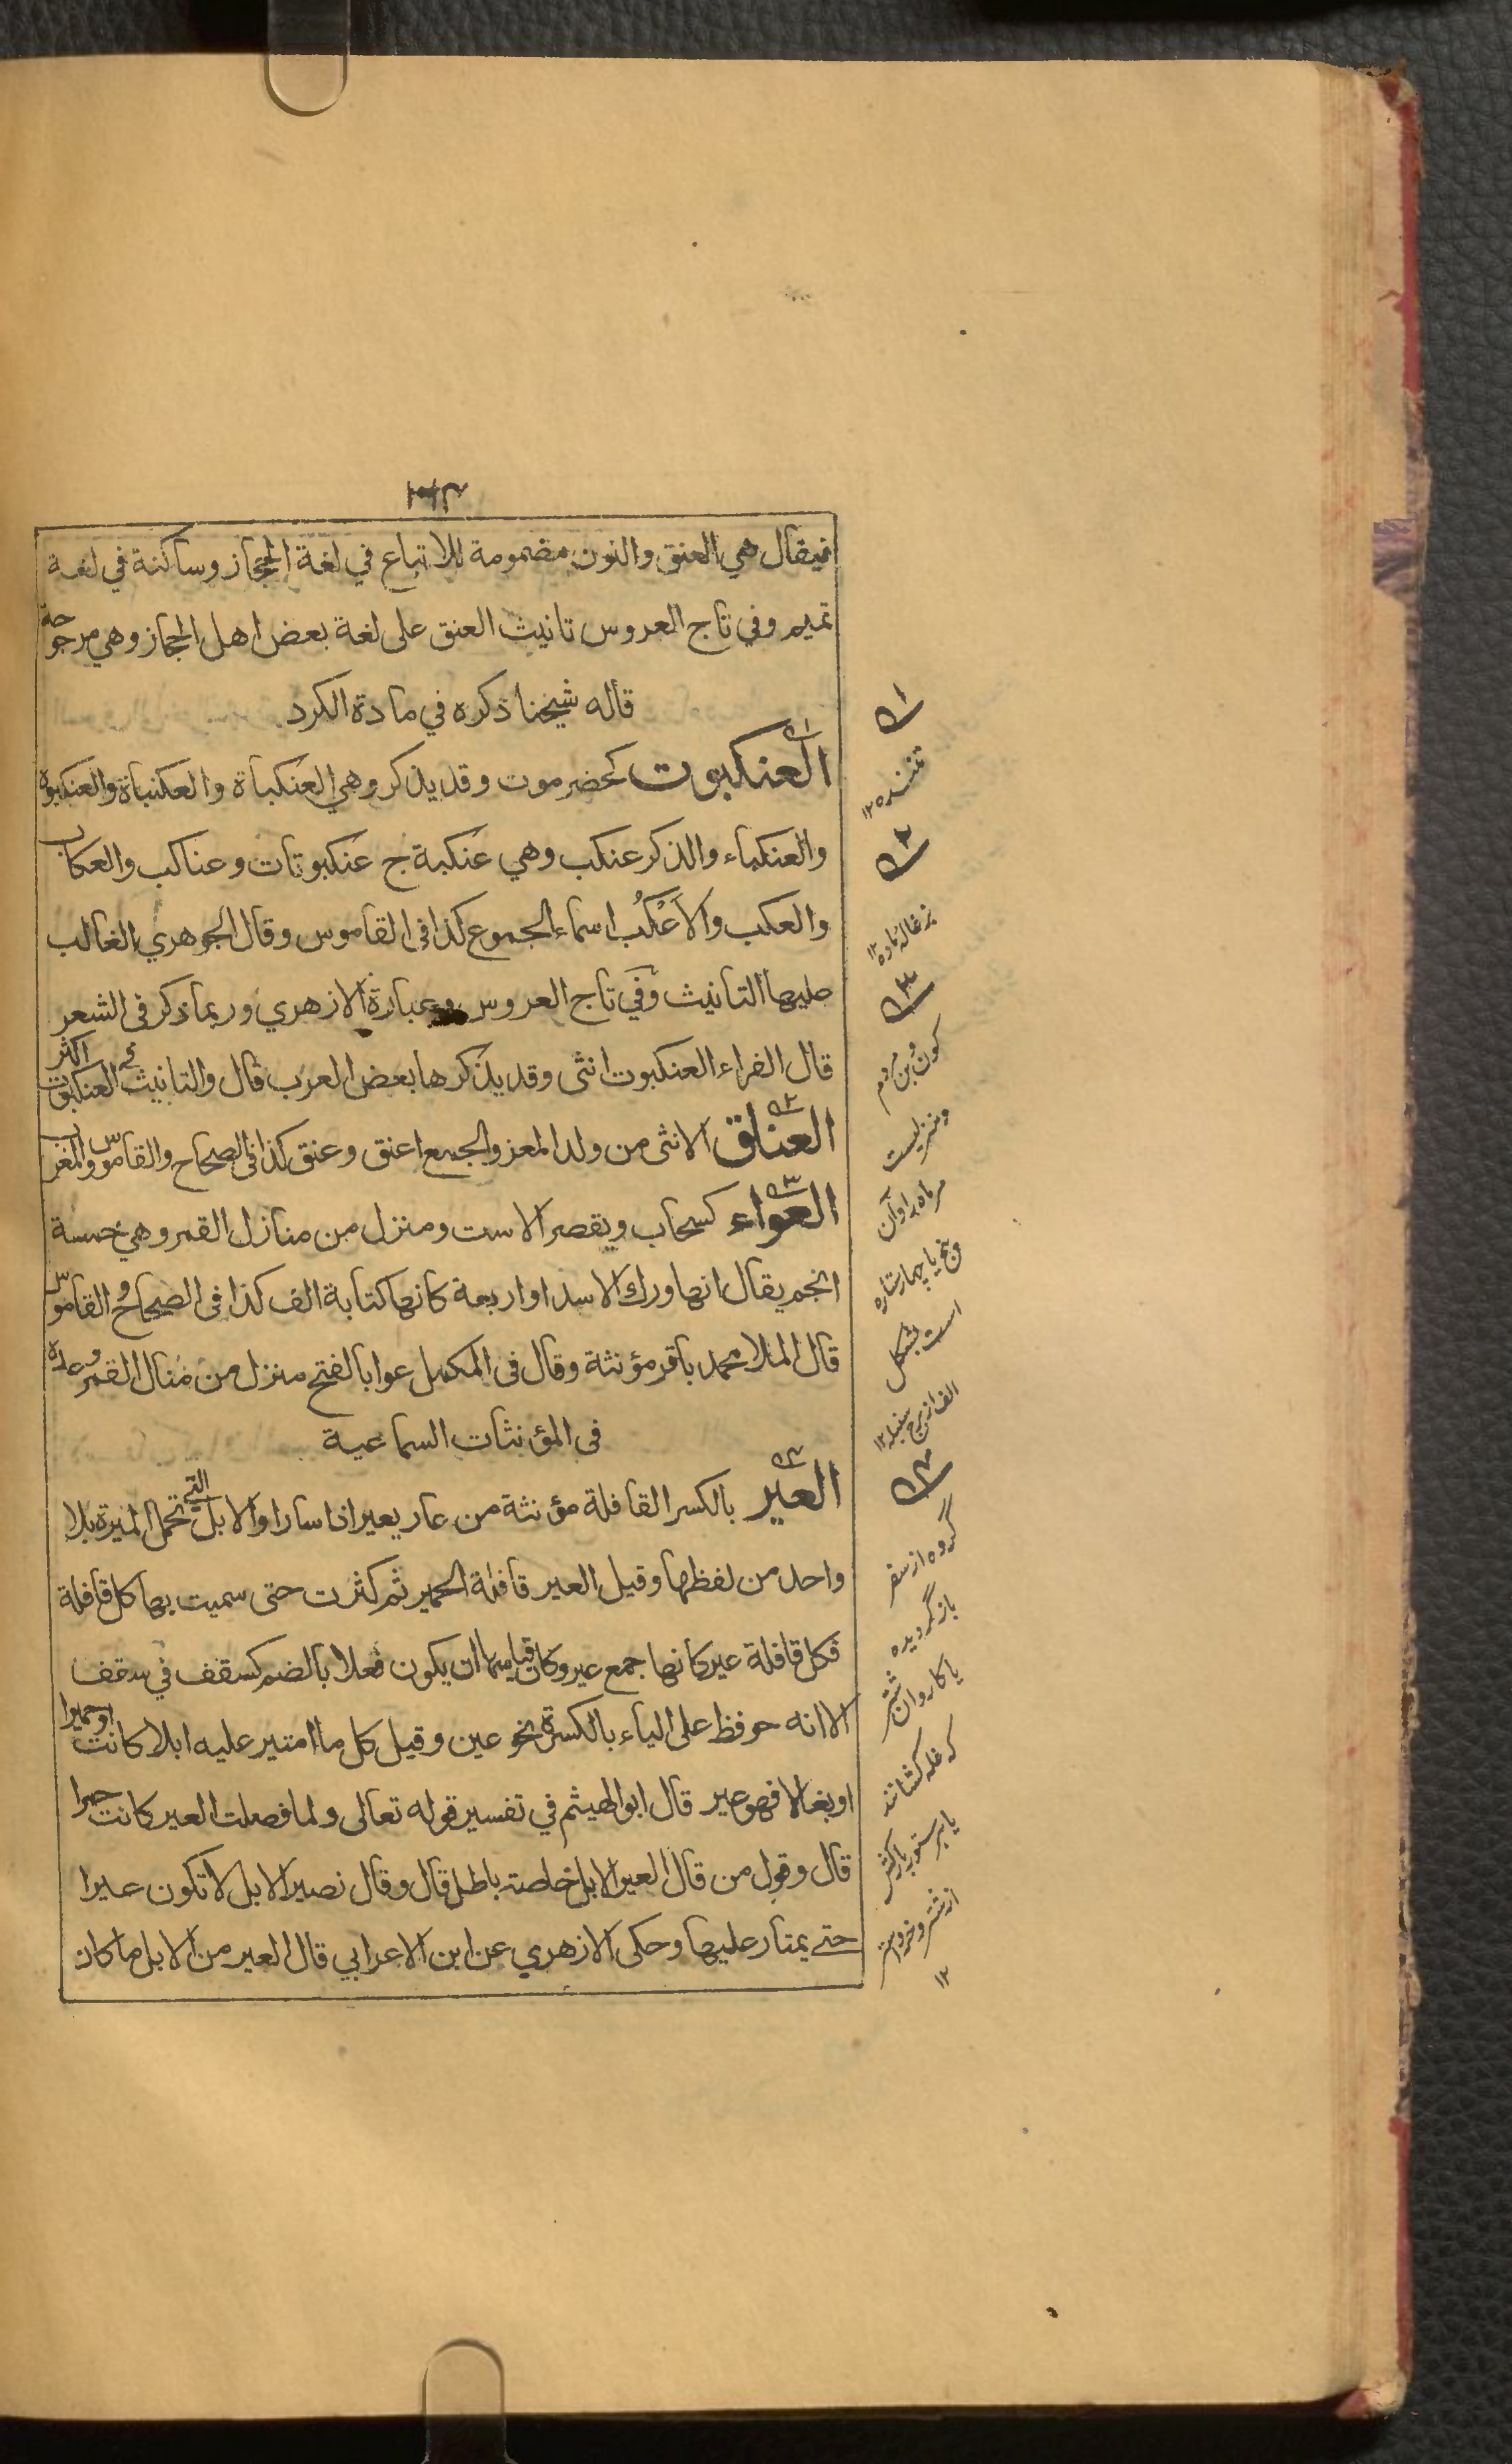 فيقال هي العنق والنون مضمومة للاتباع في لغة الحجاز وساكنة في لغة
تميم وفي تاج العروس تانيث العنق على لغة بعض اهل الحجاز وهي مرجوحة
قاله شيخنا ذكره في مادة الكرد
العنكبوت كحضرموت وقد يذكر وهي العنكباة والعكنباة والعنكبوة
والعنكباء والذكر عنكب وهي عنكبة ج عنكبوتات وعناكب والعكاب
والعكب والاَعْكُب اسماء الجموع كذا فى القاموس وقال الجوهري الغالب
عليها التانيث وفي تاج العروس وعبارة الازهري وربما ذكر فى الشعر
قال الفراء العنكبوت انثى وقد يذكرها بعض العرب قال والتانيث في العنكبوت اكثر
العناق الانثى من ولد المعز والجمع اعنق وعنق كذا فى الصحاح والقاموس والمغرب
العواء كسحاب ويقصر الاست ومنزل من منازل القمر وهي خمسة
انجم يقال انها ورك الاسد او اربعة كانها كتابة الف كذا فى الصحاح والقاموس
قال الملا محمد باقر مؤنثة وقال فى المكمل عوا بالفتح منزل من منال القمر وعدة
فى المؤنثات السماعية
العير بالكسر القافلة مؤنثة من عار يعير اذا سار او الابل التي تحمل الميرة بلا
واحد من لفظها وقيل العير قافلة الحمير ثم كثرت حتى سميت بها كل قافلة
فكل قافلة عير كانها جمع عير وكان قياسها ان يكون فعلا بالضم كسقف في سقف
الا انه حوفظ على الياء بالكسرة نحو عين وقيل كل ما امتير عليه ابلا كانت او حميرا
او بغالا فهو عير قال ابو الهيثم في تفسير قوله تعالى ولما فصلت العير كانت حمرا
قال وقول من قال العير الابل خاصة باطل قال وقال نصير الابل لا تكون عيرا
حتے يمتار عليها وحكى الازهري عن ابن الاعرابي قال العير من الابل ما كان
۱
تننده ۱۲
۲
بزغاله ماده ۱۲
۳
كون بن مردم
ومنزليست
مر ماه را وآن
پنج يا چهار ستاره
است بشكل
الف از برج سنبله ۱۲
۴
گروه از سفر
باز گرديده
يا كاروان شتر
كه غله كشانند
يا هر ستور باركش
از شتر وخر واستر
۱۲